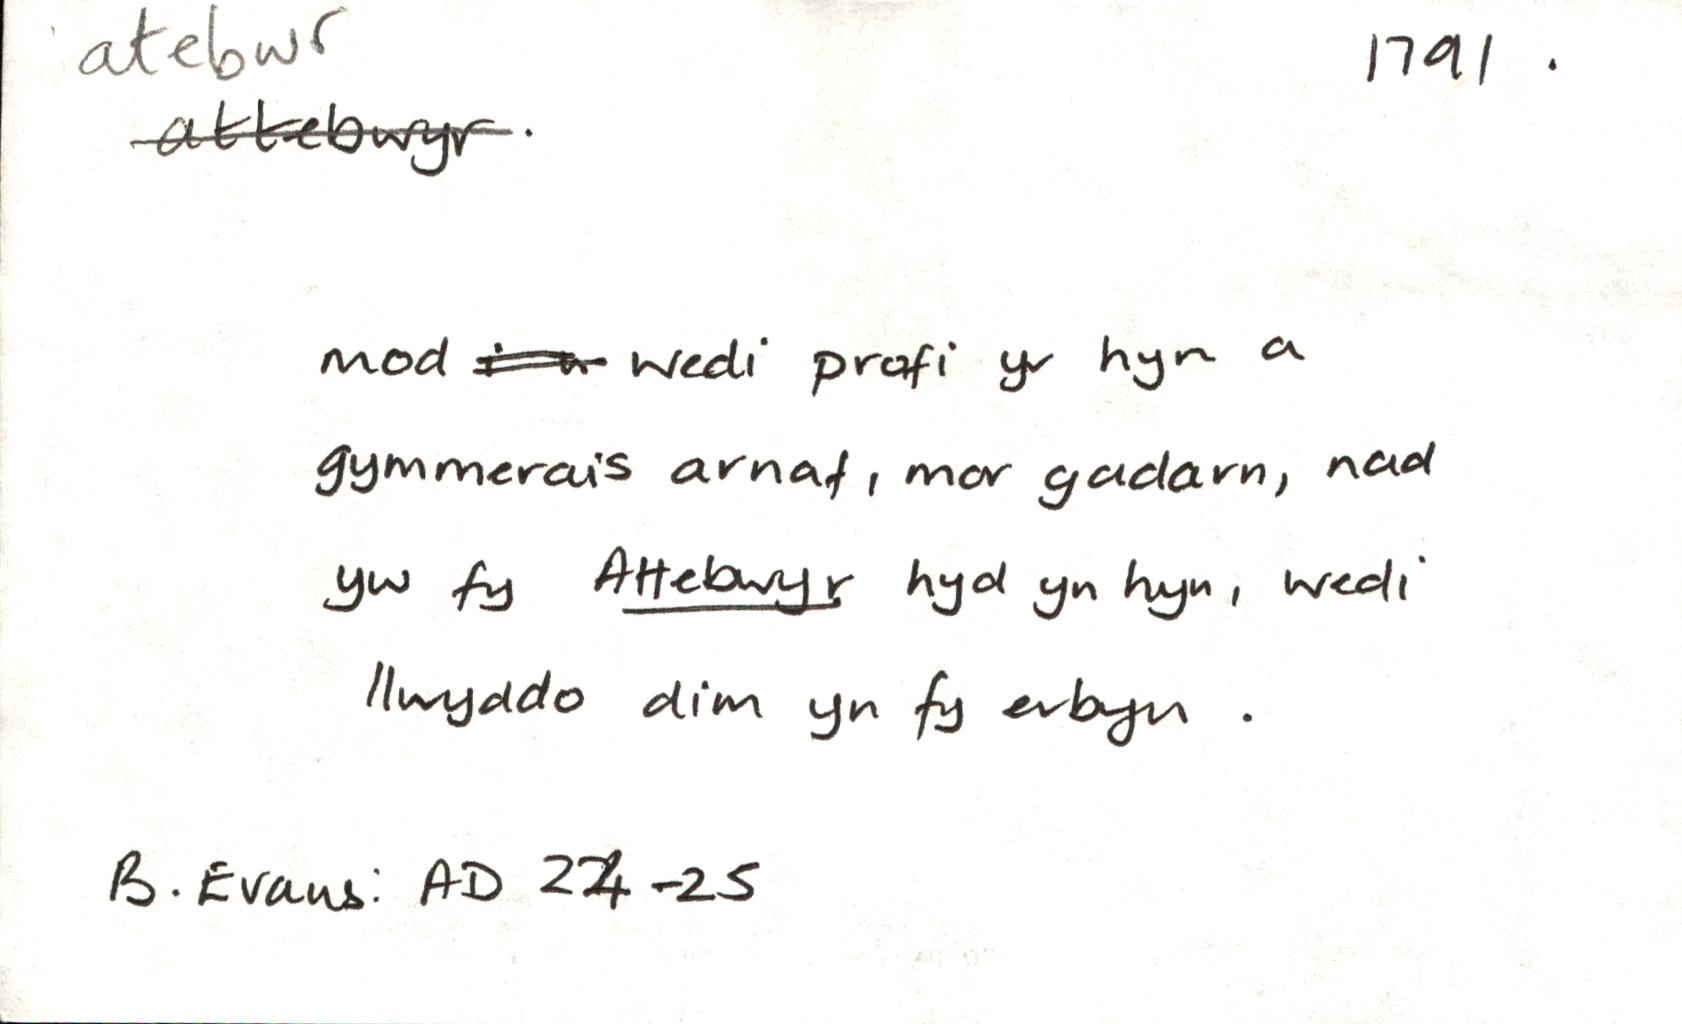 atebwr
1791.
attebwyr.
mod wedi profi yr hyn a
gymmerais arnaf, mor gadarn, nad
yw fy Attebwyr hyd yn hyn, wedi
llwyddo dim yn fy erbyn.
B. Evans: AD 24-25